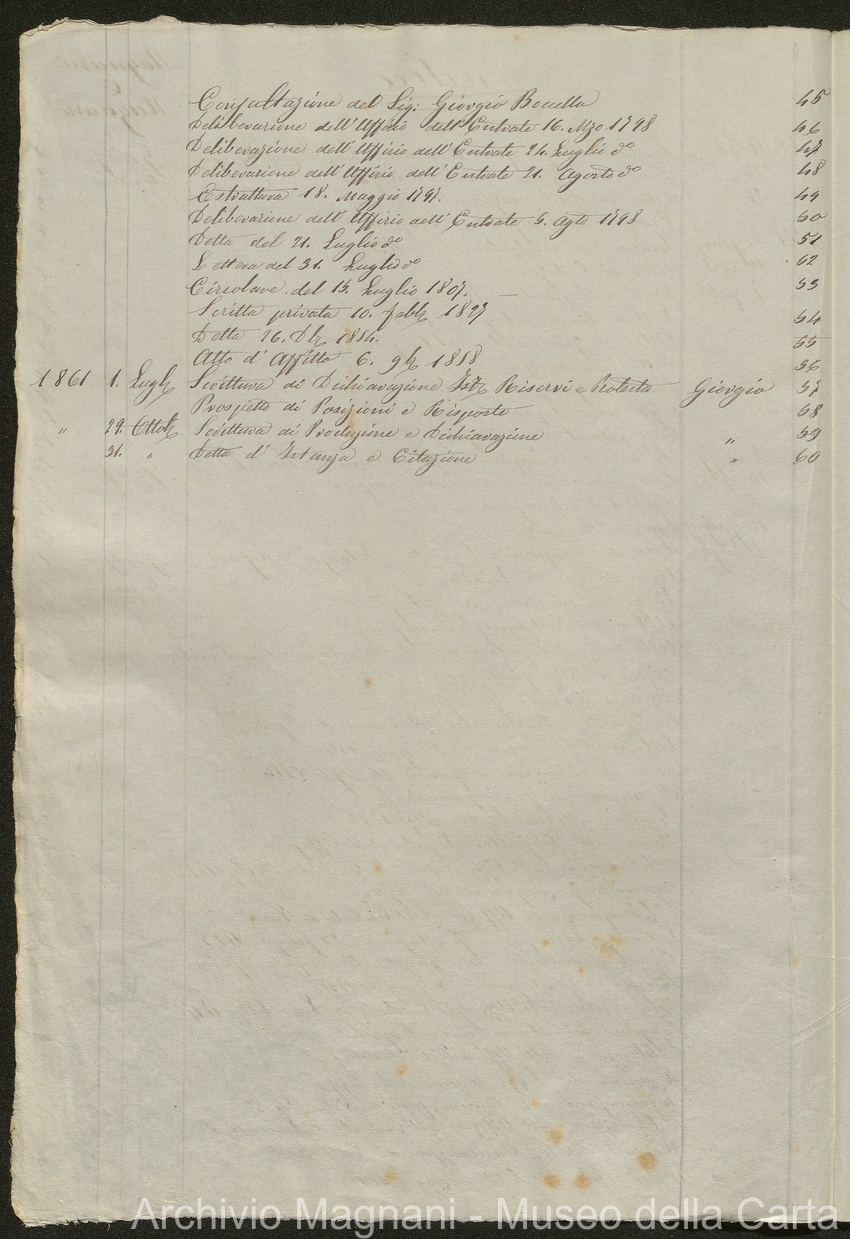 Consultazione del Sig: Giorgio Bonella 45
Deliberazione dell'Uffizio dell'Entrate 16. Mzo 1798 46
Deliberazione dell'Uffizio dell'Entrate 24. Luglio do 47
Deliberazione dell'Uffizio dell'Entrate 21. Agosto do 48
Estrattura 18. Maggio 1797. 49
Deliberazione dell'Uffizio dell'Entrate 5. Agto 1798 50
Detta del 21. Luglio do 51
Lettera del 31. Luglio do 52
Circolare del 13. Luglio 1807. 53
Scritta privata 10. febb 1827 54
Detta 26. Db 1814. 55
Atto d'Affitto 6. 9b 1818 56
1861 1. Lugl Scrittura di Dichiarazione Riservi e Protesta Giorgio 57
Prospetto di Posizioni e Risposte 58
" 29. Ottob Scrittura di Produzione e Dichiarazione " 59
31. " Detta d'Istanza e Citazione " 60
Archivio Magnani - Museo della Carta